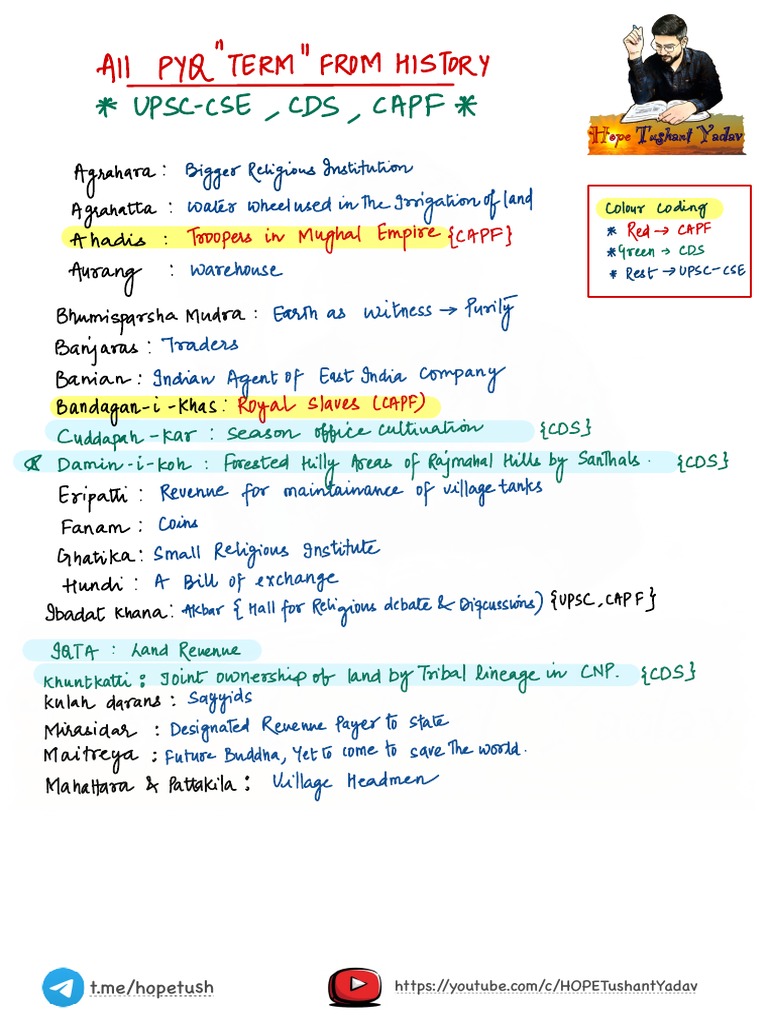 All PYQ "TERM" FROM HISTORY
* UPSC-CSE, CDS, CAPF *
Hope Tushant Yadav
Colour Coding
* Red → CAPF
* Green → CDS
* Rest → UPSC-CSE
Agrahara : Bigger Religious Institution
Agrahatta : Water wheel used in the Irrigation of land
Ahadis : Troopers in Mughal Empire {CAPF}
Aurang : Warehouse
Bhumisparsha Mudra : Earth as witness → Purity
Banjaras : Traders
Banian : Indian Agent of East India Company
Bandagan-i-Khas : Royal Slaves (CAPF)
Cuddapah-kar : Season office cultivation {CDS}
* Damin-i-koh : Forested Hilly Areas of Rajmahal Hills by Santhals. {CDS}
Eripatti : Revenue for maintainance of village tanks
Fanam : Coins
Ghatika : Small Religious Institute
Hundi : A Bill of exchange
Ibadat Khana : Akbar { Hall for Religious debate & Discussions) {UPSC, CAPF}
IQTA : Land Revenue
Khuntkatti : Joint ownership of land by Tribal lineage in CNP. {CDS}
Kulah darans : Sayyids
Mirasidar : Designated Revenue Payer to State
Maitreya : Future Buddha, Yet to come to save the world.
Mahattara & Pattakila : Village Headmen
t.me/hopetush
https://youtube.com/c/HOPETushantYadav